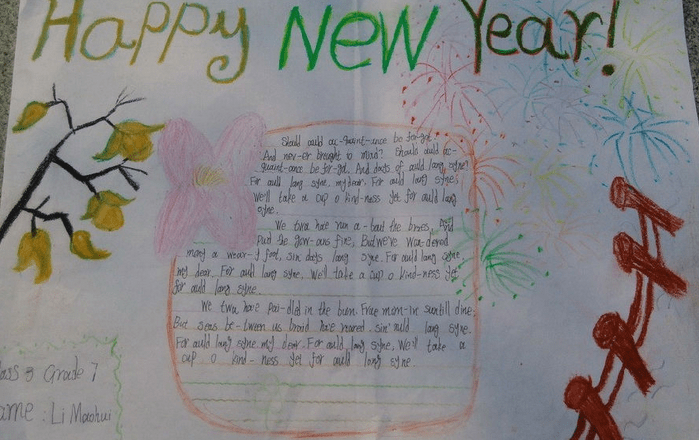 Happy New Year!
Should auld ac-quaint-ance be for-got
And nev-er brought to mind? Should auld ac-
quaint-ance be for-got. And days of auld lang syne?
For auld lang syne, my dear. For auld lang syne.
We'll take a cup o kind-ness yet for auld lang
syne.
We twa have run a-bout the braes, And
the gow-ans fine, But we've wan-dered
many a wear-y foot, sin days lang syne. For auld lang syne,
my dear. For auld lang syne. We'll take a cup o kind-ness yet
for auld lang syne.
We twa have pai-dled in the burn. Frae morn-in sun till dine.
But seas be-tween us braid have roared sin' auld lang syne.
For auld lang syne my dear. For auld lang syne. We'll take a
cup o kind-ness yet for auld lang syne
Grade 7
Li